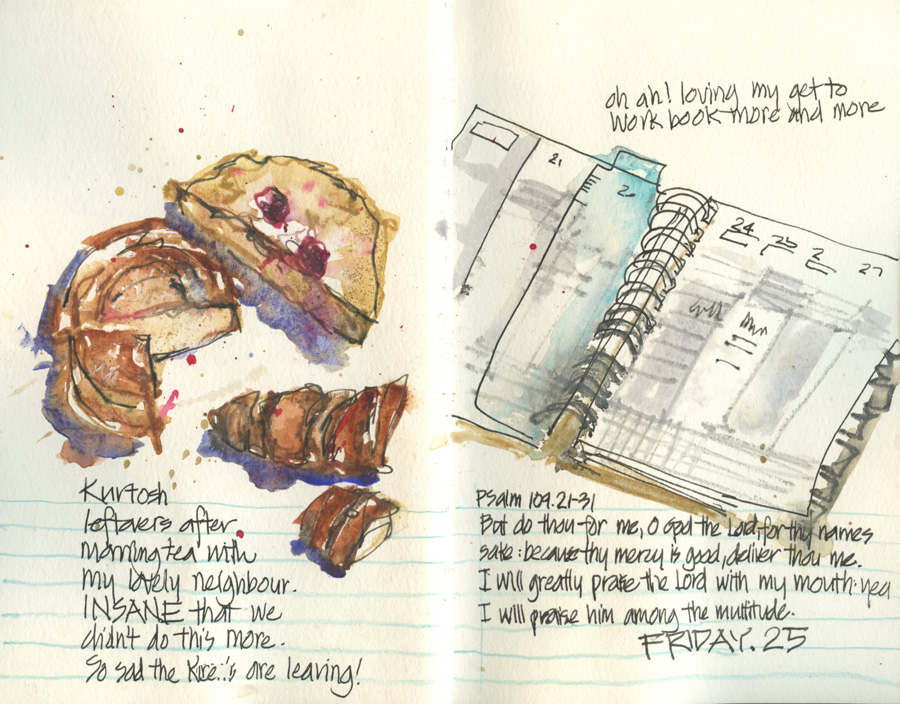 Kurtosh
leftovers after
morning tea with
my lovely neighbour.
INSANE that we
didn't do this more.
So sad the are leaving!
oh ah! loving my get to
work book more and more
21
24 25 2 27
Psalm 109.21-31
But do thou for me, O God the Lord, for thy names
sake: because thy mercy is good, deliver thou me.
I will greatly praise the Lord with my mouth: yea
I will praise him among the multitude.
FRIDAY. 25